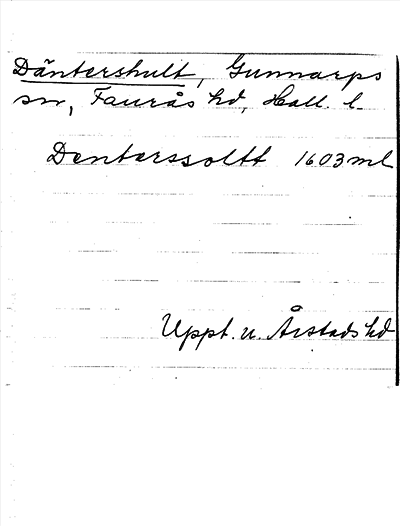 Däntershult, Gunnarps
sn, Faurås hd, Hall. l.
Denterssoltt 1603 ml
Uppt. u. Årstads hd